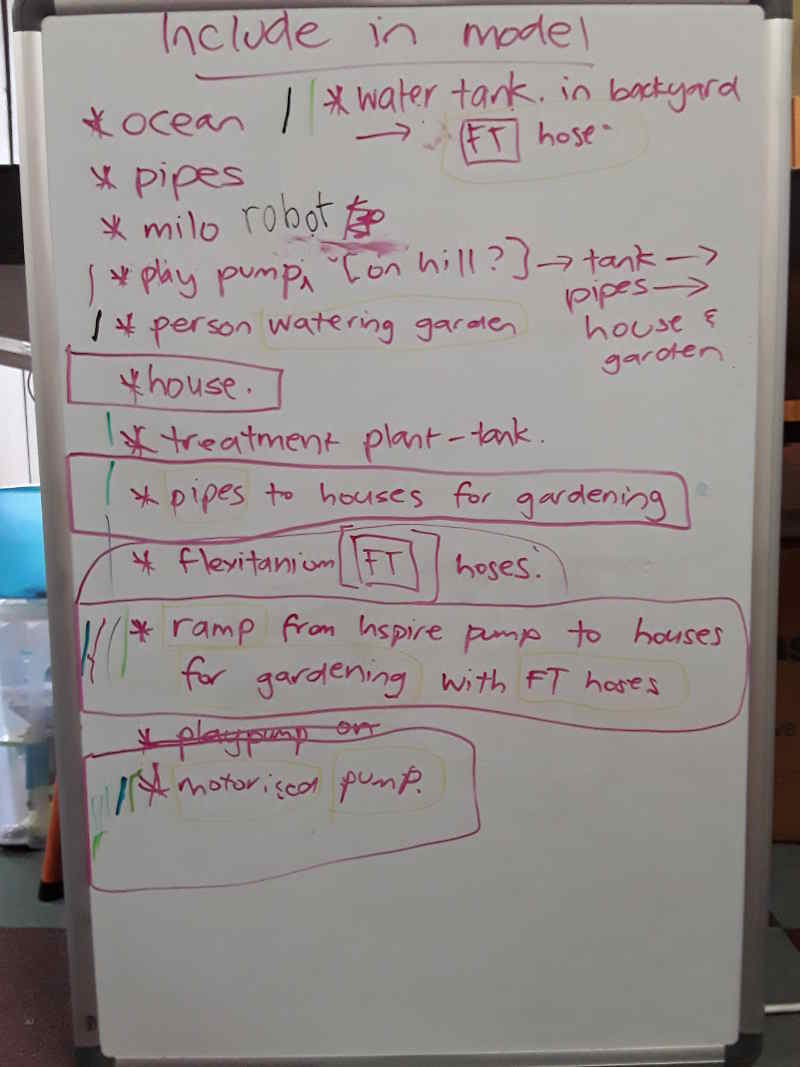 Include in model
* ocean
* water tank. in backyard
→ FT hose
* pipes
* milo robot
* play pump, [on hill?] → tank →
pipes →
house &
garden
* person watering garden
* house.
* treatment plant - tank.
* pipes to houses for gardening
* flexitanium FT hoses.
* ramp from hspire pump to houses
for gardening with FT hoses
* playpump on
* motorised pump.